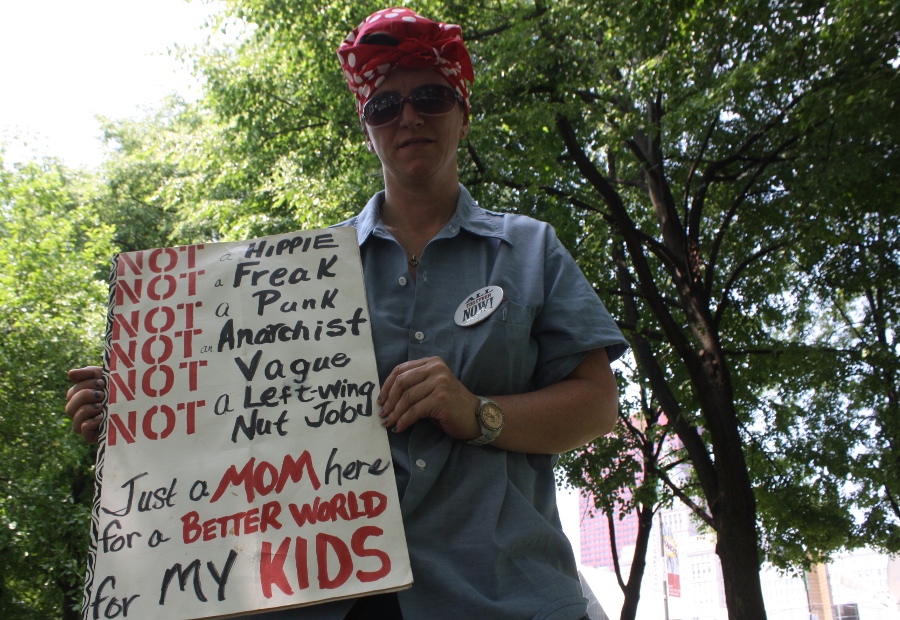 NOT a HIPPIE
NOT a Freak
NOT a Punk
NOT an Anarchist
NOT Vague
NOT a Left-wing
Nut Joby
Just a MOM here
for a BETTER WORLD
for MY KIDS
ALL
NOW!